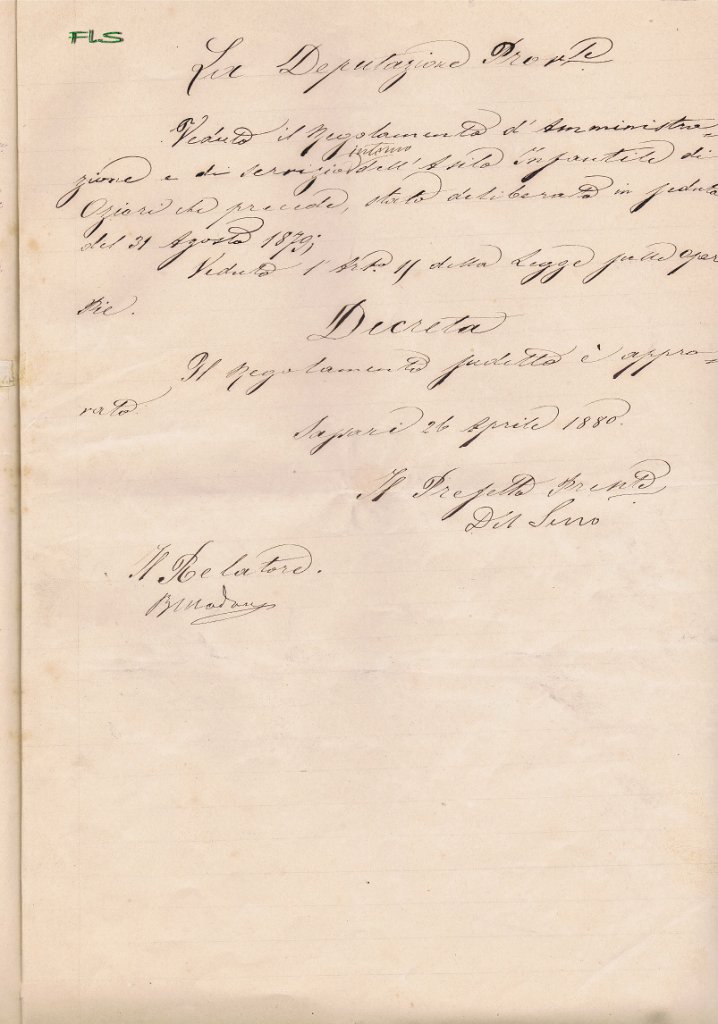 FLS
La Deputazione Prov.le
Veduto il Regolamento d'Amministra=
interno
zione e di servizio dell'Asilo Infantile di
Ozieri che precede, stato deliberato in seduta
del 31 Agosto 1879;
Veduto l'Art.o 11 della Legge sulle Opere
Pie.
Decreta
Il Regolamento sudetto è appro=
vato.
Sassari 26 Aprile 1880.
Il Prefetto
Il Relatore.